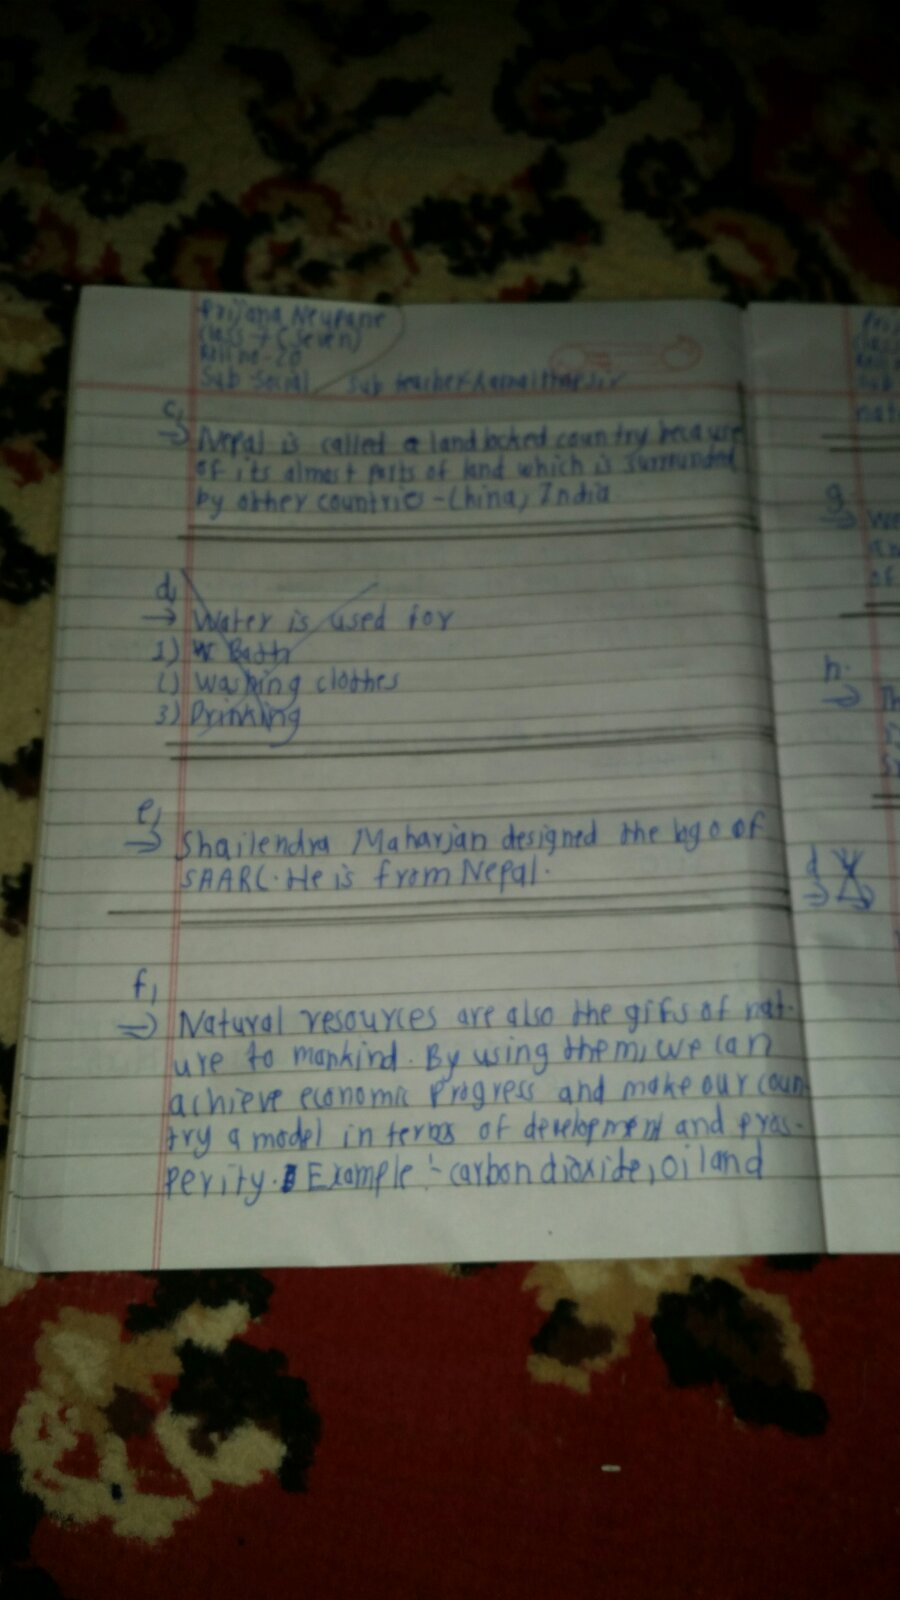 Prijana Neupane
Class-7 (Seven)
Roll no-20
Sub-Social Sub teacher-
c,
→ Nepal is called a landlocked country because
of its almost parts of land which is surrounded
by other countries - China, India
d,
→ Water is used for
1) Bath
2) Washing clothes
3) Drinking
e,
→ Shailendra Maharjan designed the logo of
SAARC. He is from Nepal.
f,
→ Natural resources are also the gifts of nat-
ure to mankind. By using them, we can
achieve economic progress and make our coun-
try a model in terms of development and pros-
perity. Example :- carbondioxide, oil and
nat
g
→ We
an
of
h.
→ Th
d
→